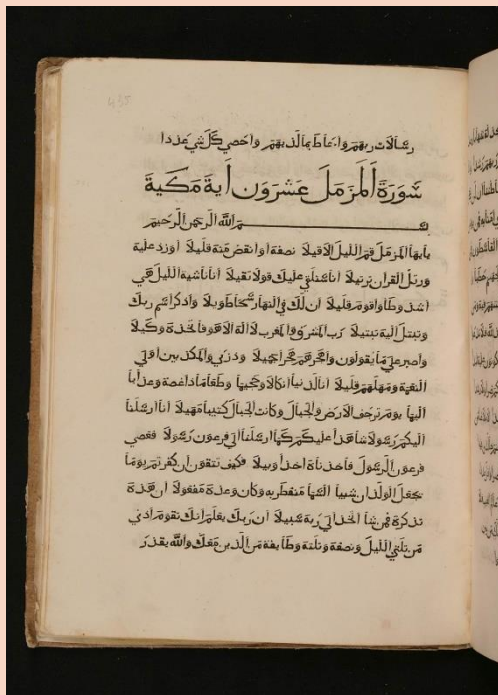 435
رسالات ربهم واحاط بما لديهم واحصى كل شي عددا
سورة المزمل عشرون اية مكية
بسم الله الرحمن الرحيم
يايها المزمل قم الليل الا قليلا نصفه او انقص منه قليلا او زد عليه
ورتل القران ترتيلا انا سنلقي عليك قولا ثقيلا ان ناشية الليل هي
اشد وطا واقوم قليلا ان لك في النهار سبحا طويلا واذكر اسم ربك
وتبتل اليه تبتيلا رب المشرق والمغرب لا اله الا هو فاتخذه وكيلا
واصبر على ما يقولون واهجرهم هجرا جميلا وذرني والمكذبين اولي
النعمة ومهلهم قليلا ان لدينا انكالا وجحيما وطعاما ذا غصة وعذابا
اليما يوم ترجف الارض والجبال وكانت الجبال كثيبا مهيلا انا ارسلنا
اليكم رسولا شاهدا عليكم كما ارسلنا الى فرعون رسولا فعصى
فرعون الرسول فاخذناه اخذا وبيلا فكيف تتقون ان كفرتم يوما
يجعل الولدان شيبا السما منفطر به وكان وعده مفعولا ان هذه
تذكرة فمن شا اتخذ الى ربه سبيلا ان ربك يعلم انك تقوم ادنى
من ثلثي الليل ونصفه وثلثه وطايفة من الذين معك والله يقدر